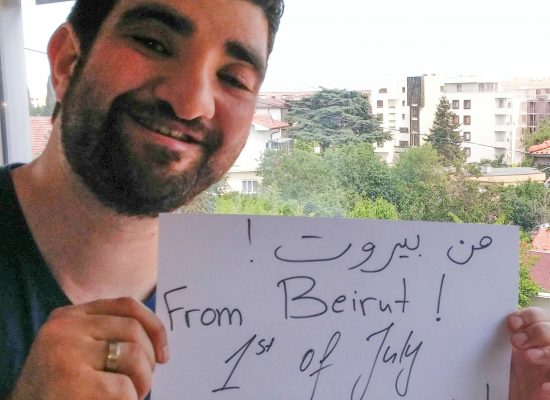 من بيروت !
From Beirut !
1st of July